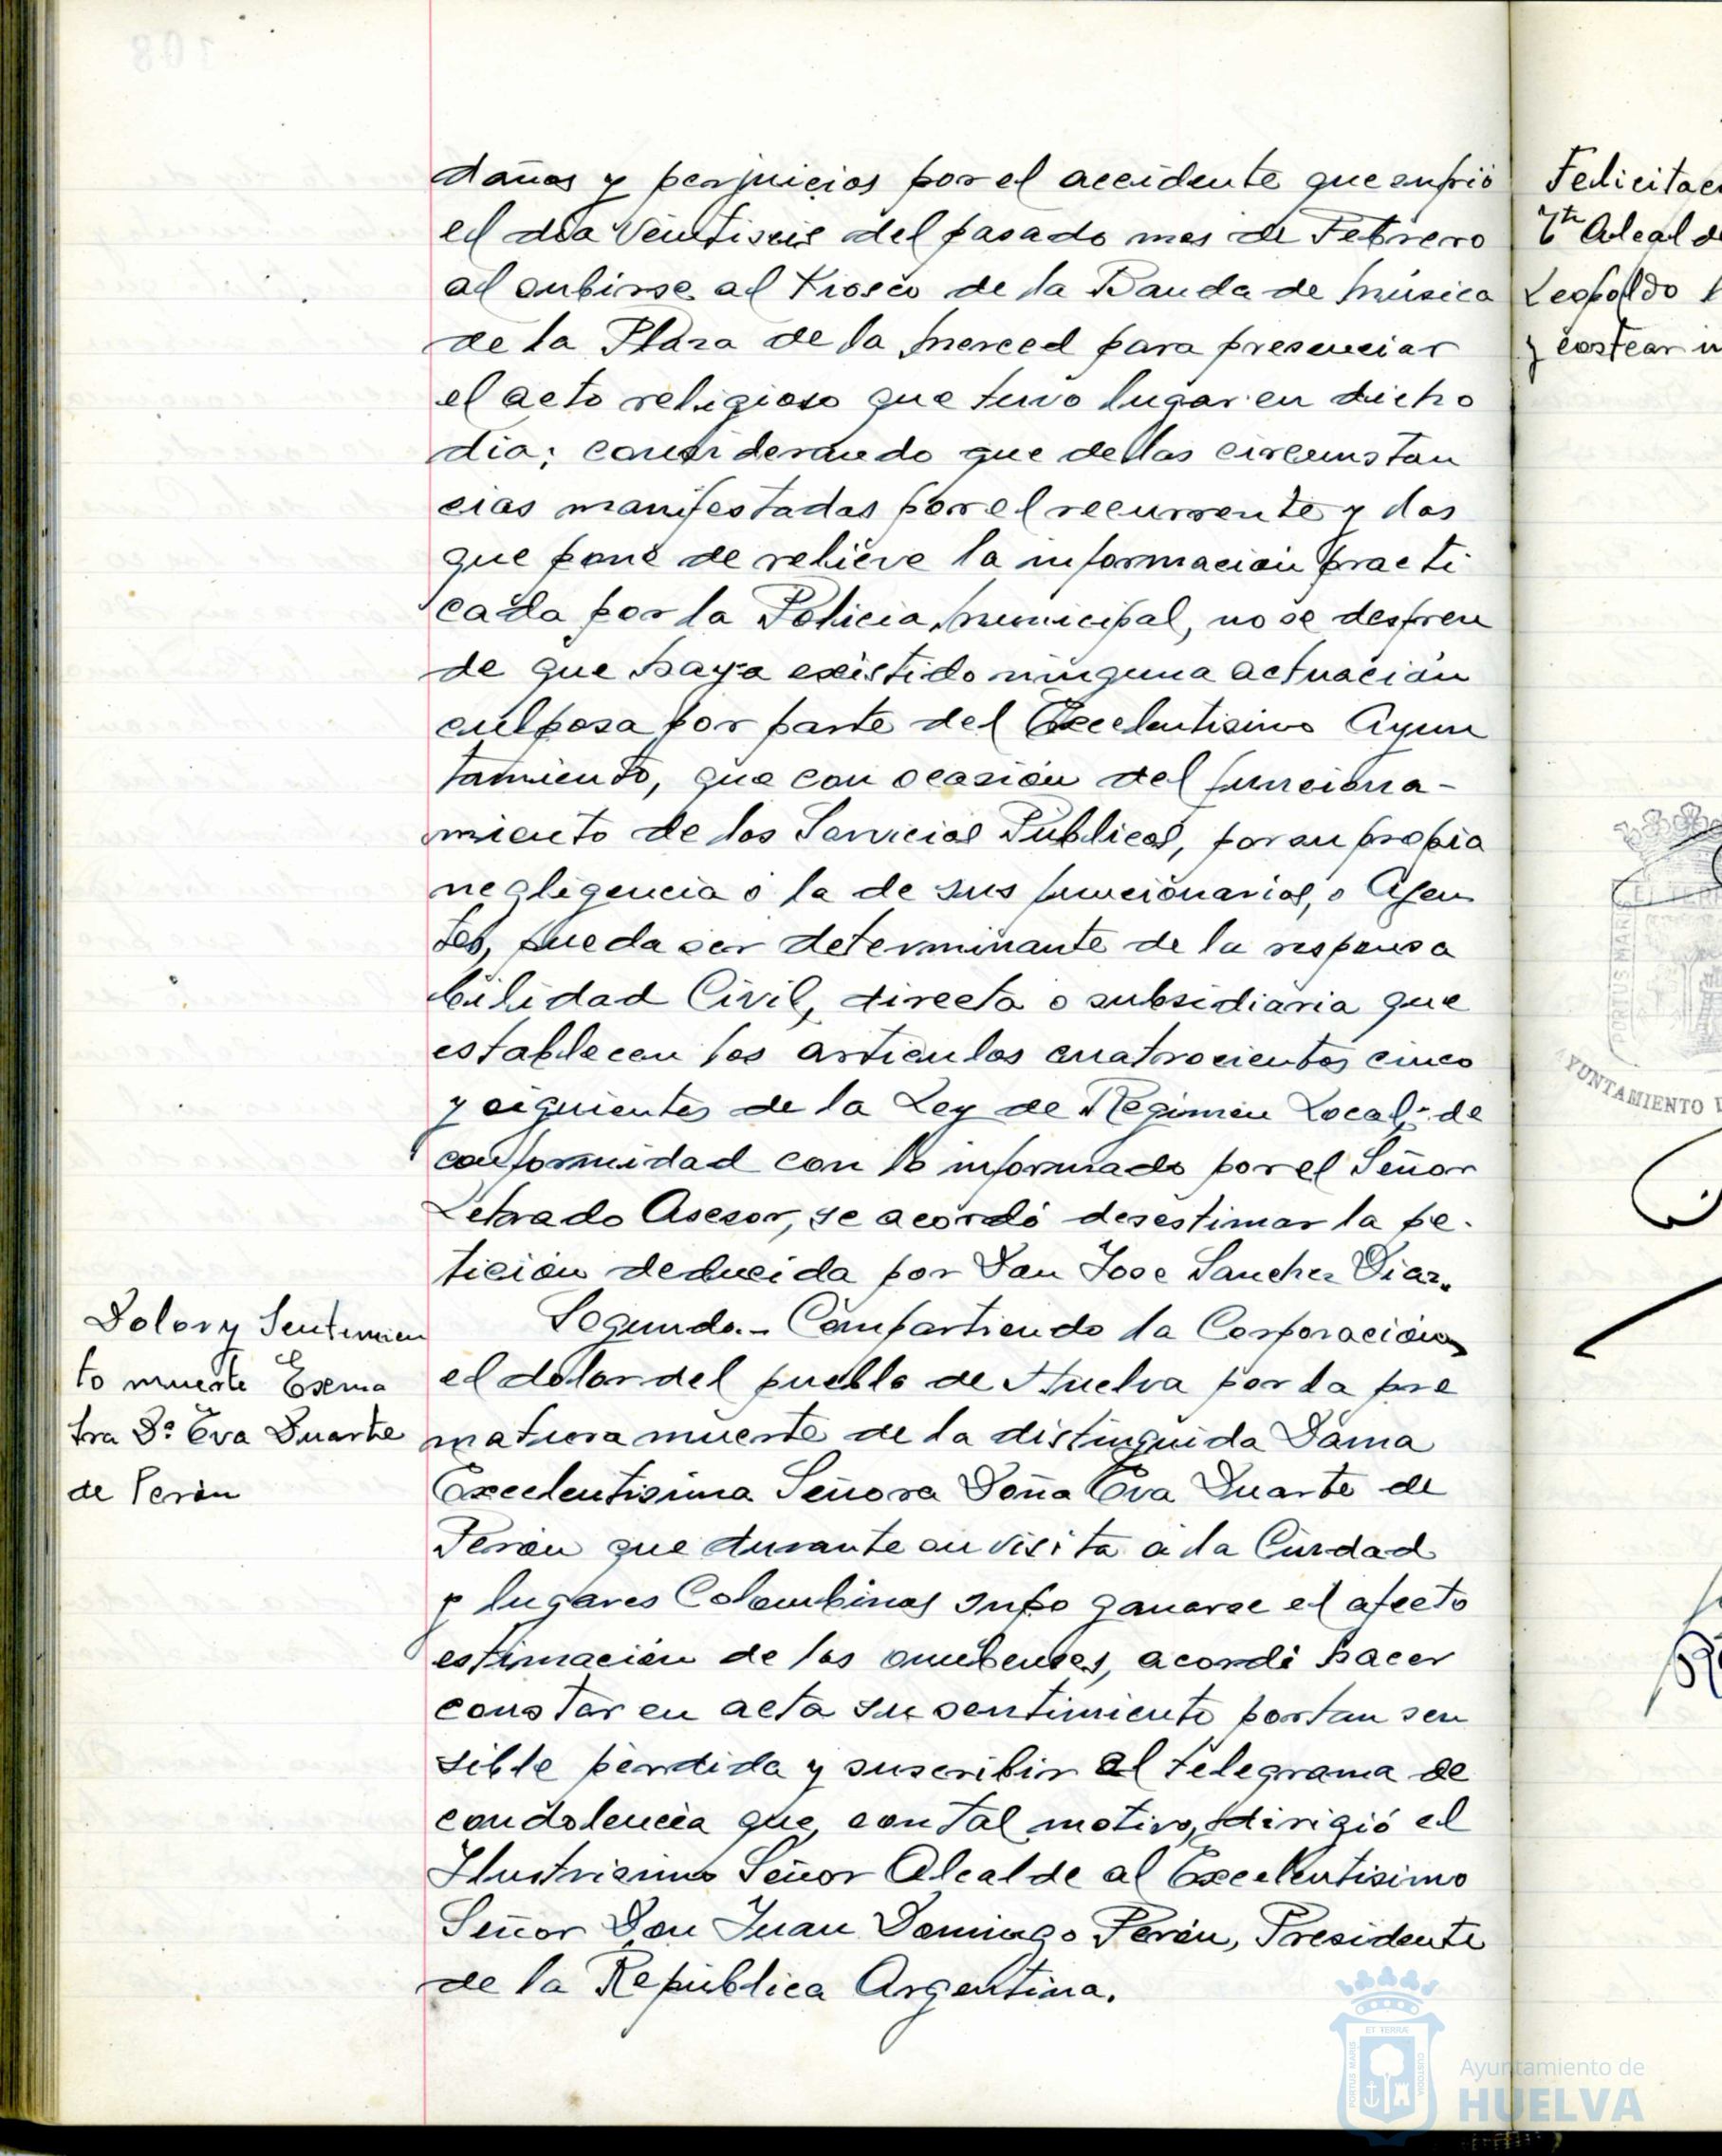 daños y perjuicios por el accidente que sufrió
el dia Veintiseis del pasado mes de Febrero
al subirse al Kiosco de la Banda de Música
de la Plaza de la Merced para presenciar
el acto religioso que tuvo lugar en dicho
dia; considerando que de las circunstan
cias manifestadas por el recurrente y las
que pone de relieve la información practi
cada por la Policia Municipal, no se despren
de que haya existido ninguna actuación
culposa por parte del Excelentisimo Ayun
tamiento, que con ocasión del funciona-
miento de los Servicios Públicos, por su propia
negligencia ó la de sus funcionarios, o Agen
tes, pueda ser determinante de la responsa
bilidad Civil, directa o subsidiaria que
establecen los articulos cuatrocientos cinco
y siguientes de la Ley de Régimen Local; de
conformidad con lo informado por el Señor
Letrado Asesor, se acordó desestimar la pe-
tición deducida por Don Jose Sanchez Diaz.
Dolor y Sentimien
to muerte Excma
tra Dª Eva Duarte
de Perón
Segundo.- Compartiendo la Corporación
el dolor del pueblo de Huelva por la pre
matura muerte de la distinguida Dama
Excelentisima Señora Doña Eva Duarte de
Perón que durante su visita a la Ciudad
y lugares Colombinos supo ganarse el afecto
estimación de los onubenses, acordó hacer
constar en acta su sentimiento por tan sen
sible pérdida y suscribir el telegrama de
condolencia que, con tal motivo, dirigió el
Ilustrisimo Señor Alcalde al Excelentisimo
Señor Don Juan Domingo Perón, Presidente
de la República Argentina.
Felicitac
Tte Alcalde
Leopoldo
y costear
PORTUS MARIS
AYUNTAMIENTO
ET TERRÆ
PORTUS MARIS
CUSTODIA
Ayuntamiento de
HUELVA